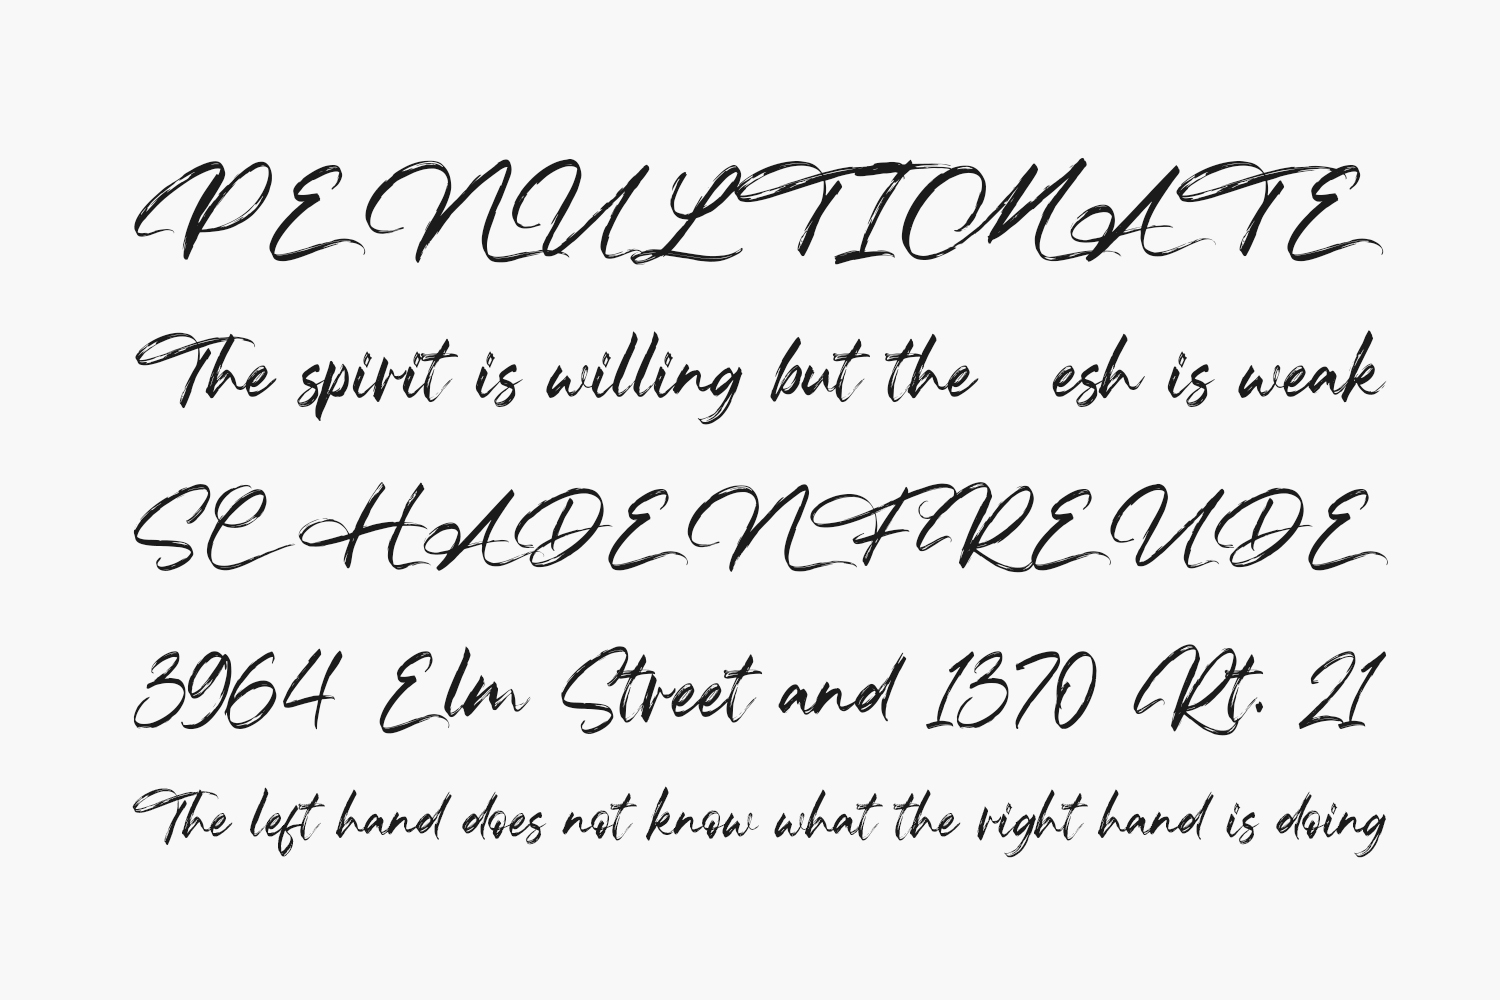 PENULTIMATE
The spirit is willing but the esh is weak
SCHADENFREUDE
3964 Elm Street and 1370 Rt. 21
The left hand does not know what the right hand is doing